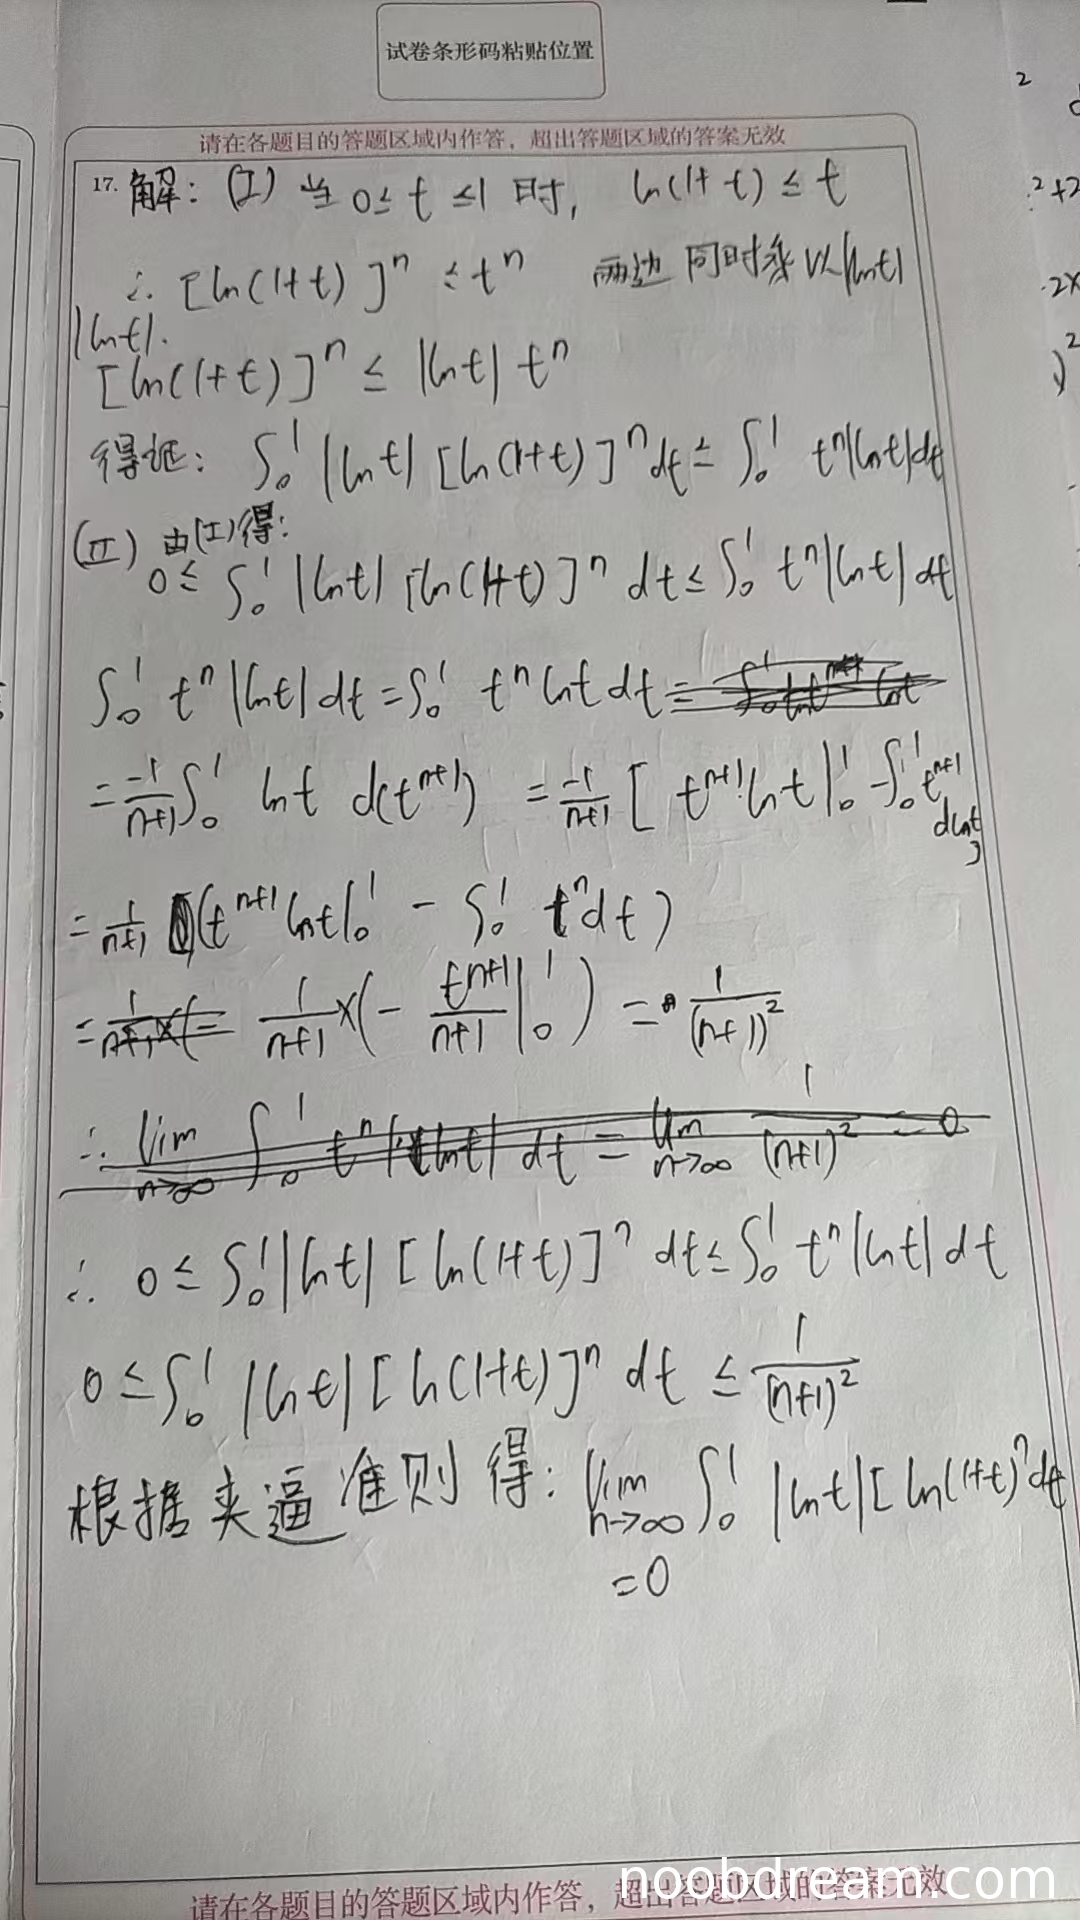 试卷条形码粘贴位置
请在各题目的答题区域内作答，超出答题区域的答案无效
17. 解：(I) 当 0≤ t ≤1 时， ln(1+t) ≤ t
∴ [ln(1+t)]ⁿ ≤ tⁿ 两边同时乘以|lnt|
|lnt|.
[ln(1+t)]ⁿ ≤ |lnt| tⁿ
得证：∫₀¹ |lnt| [ln(1+t)]ⁿ dt ≤ ∫₀¹ tⁿ|lnt|dt
(II) 由(I)得：
0≤ ∫₀¹ |lnt| [ln(1+t)]ⁿ dt ≤ ∫₀¹ tⁿ|lnt| dt
∫₀¹ tⁿ |lnt| dt = ∫₀¹ tⁿ lnt dt =
= -1/(n+1) ∫₀¹ lnt d(tⁿ⁺¹) = -1/(n+1) [ tⁿ⁺¹·lnt|₀¹ - ∫₀¹ tⁿ⁺¹ dlnt ]
= 1/(n+1) (tⁿ⁺¹ lnt|₀¹ - ∫₀¹ tⁿ dt)
= 1/(n+1) ×( = 1/(n+1) × (- tⁿ⁺¹/(n+1) |₀¹ ) = 1/(n+1)²
∴ lim n→∞ ∫₀¹ tⁿ |lnt| dt = lim n→∞ 1/(n+1)² = 0
∴ 0 ≤ ∫₀¹ |lnt| [ln(1+t)]ⁿ dt ≤ ∫₀¹ tⁿ |lnt| dt
0 ≤ ∫₀¹ |lnt| [ln(1+t)]ⁿ dt ≤ 1/(n+1)²
根据夹逼准则得：lim n→∞ ∫₀¹ |lnt| [ln(1+t)ⁿ dt
=0
请在各题目的答题区域内作答，超出答题区域的答案无效
noobdream.com